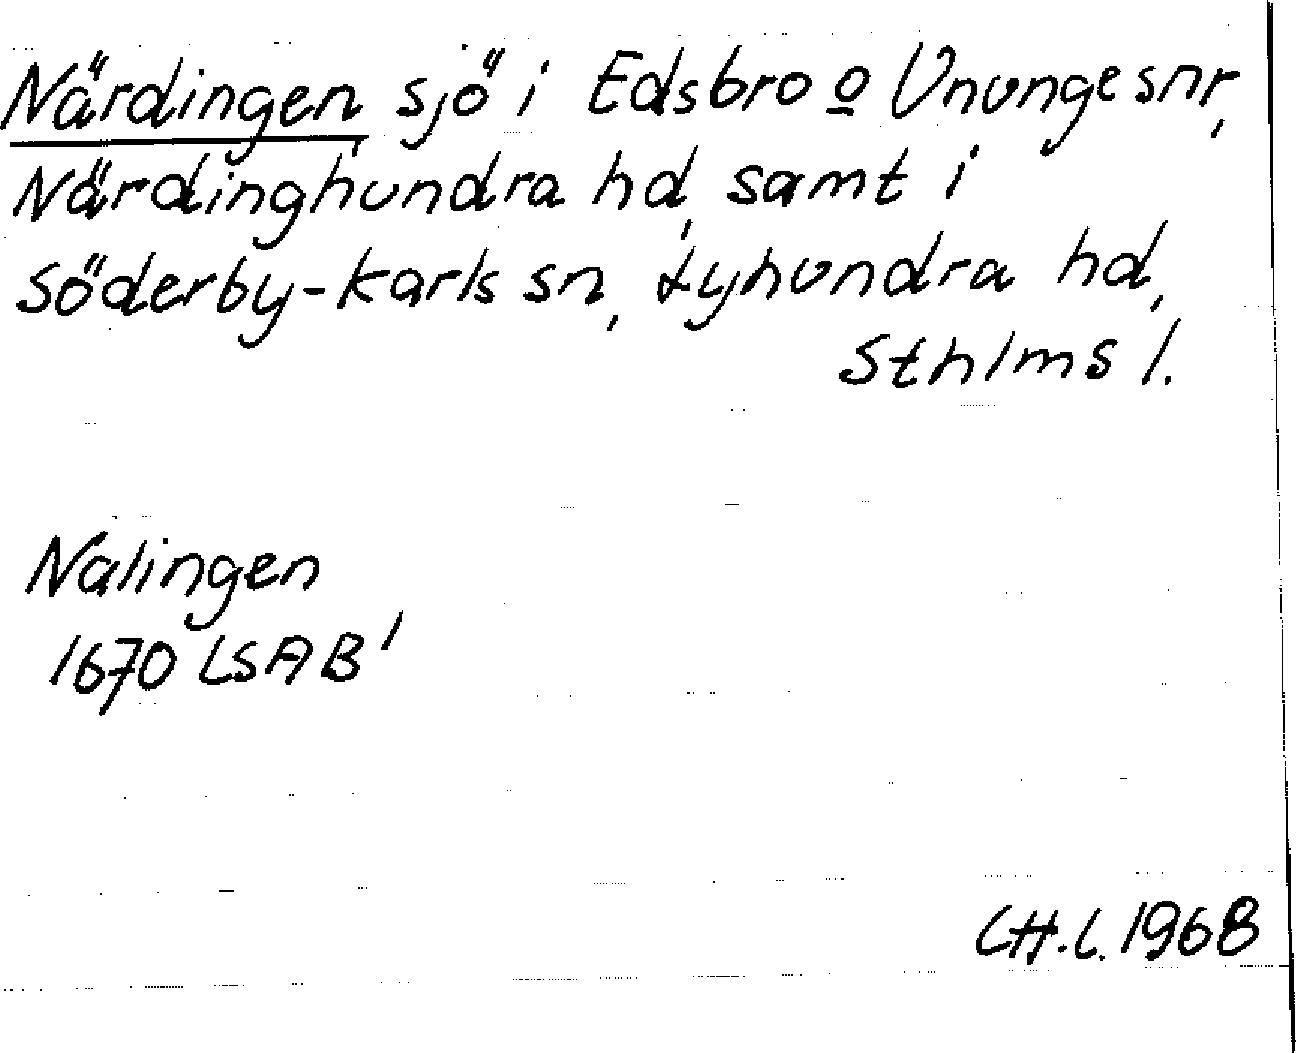 Närdingen sjö i Edsbro o Ununge snr,
Närdinghundra hd, samt i
Söderby-Karls sn, Lyhundra hd,
Sthlms l.
Nalingen
1670 LSAB'
CH.L. 1968